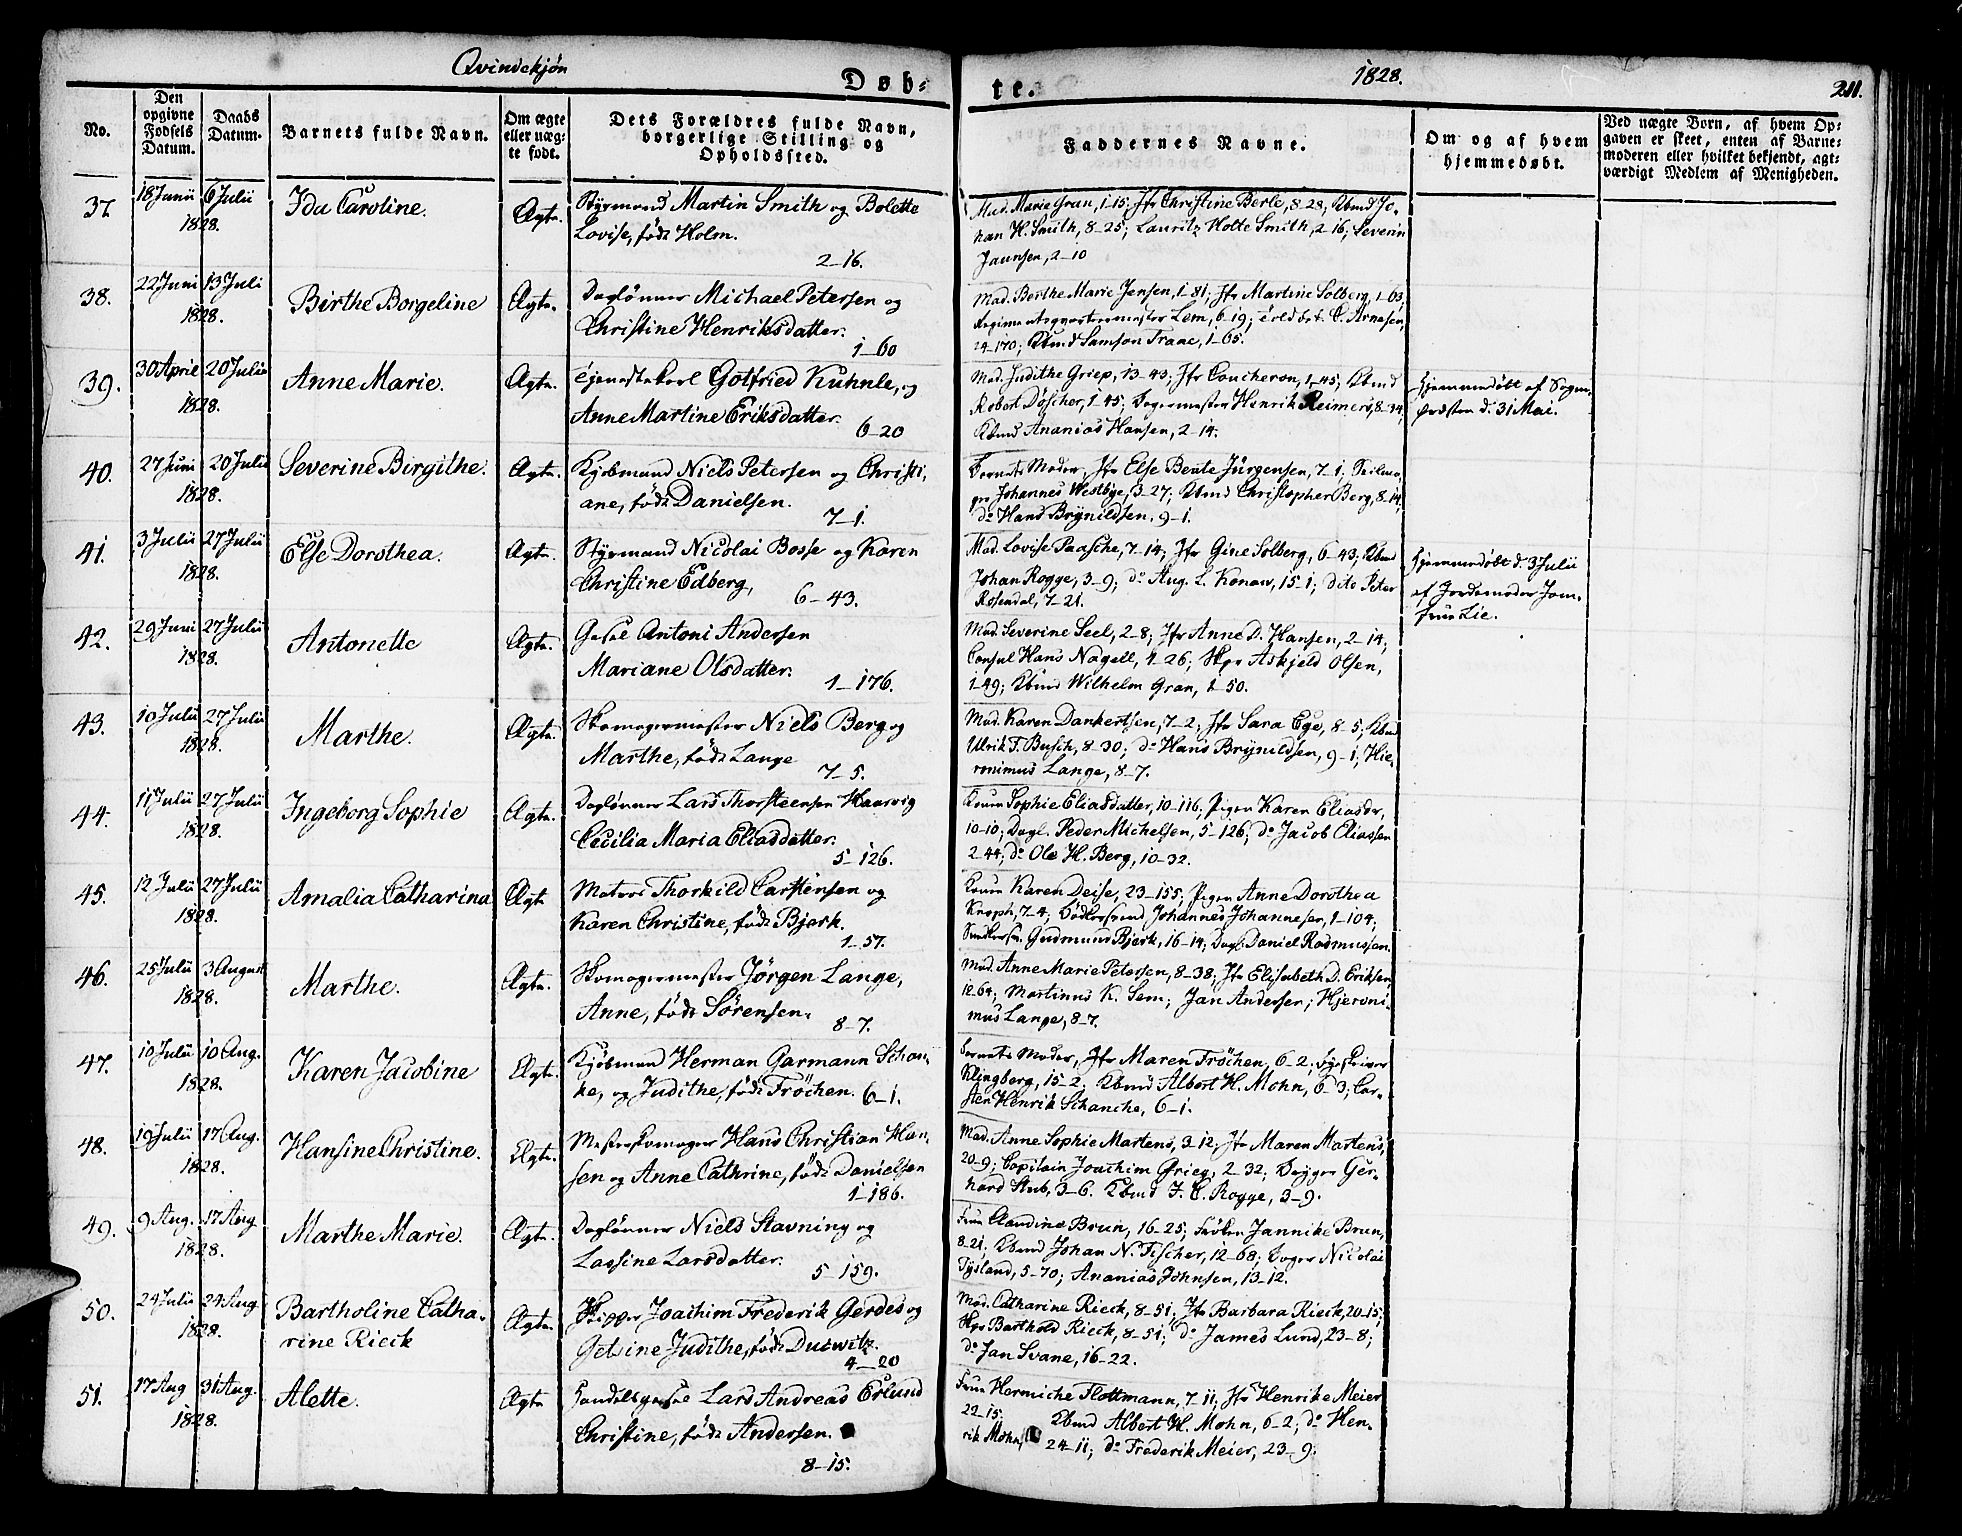 Qvindekjøn
Døb-
te.
1828.
211.
No.
Den opgivne Fødsels Datum.
Daabs Datum.
Barnets fulde Navn.
Om ægte eller uæg-te født.
Dets Forældres fulde Navn, borgerlige Stilling og Opholdssted.
Faddernes Navne.
Om og af hvem hjemmedøbt.
Ved uægte Børn, af hvem Op-gaven er skeet, enten af Barne-moderen eller hvilket bekjendt, agt-værdigt Medlem af Menigheden.
37. 18 Junii 6 Julii 1828. Ida Caroline. Ægte. Styrmand Martin Smith og Bolette
Lovise, født Holm.
2-16.
Mad. Marie Gran, 1-15; Jfr Christine Berle, 8-28; Kbmd Jo-
han H. Smith, 8-25; Lauritz Holte Smith, 2-16; Severin
Jaunsen, 2-10
38. 22 Juni 13 Juli 1828. Birthe Borgeline Ægte. Daglønner Michael Petersen og
Christine Henriksdatter.
1-60
Mad. Berthe Marie Jensen, 1-81; Jfr Martine Solberg, 1-63;
Regimentsqvartermester Lem, 6-19; C. Arnesen,
24-170; Kbmd Samson Traae, 1-65.
39. 30 April 20 Julii 1828. Anne Marie. Ægte. Tjenestekarl Gotfried Kuhnle, og
Anne Martine Eriksdatter.
6-20
Mad. Judithe Griep, 13-43; Jfr Coucheron, 1-45; Kbmd
Robert Döscher, 1-45; Bagermester Henrik Reimers, 8-34;
Kbmd Ananias Hansen, 2-14.
Hjemmedøbt af Sogne-
præsten d. 31 Mai.
40. 27 Juni 20 Julii 1828. Severine Birgithe. Ægte. Kjøbmand Niels Petersen og Christi-
ane, født Danielsen.
7-1.
Barnets Moder, Jfr Else Bente Jürgensen, 7-1;
Johannes Westbye, 3-27; Kbmd Christopher Berg, 8-14;
do Hans Brynildsen, 9-1.
41. 3 Julii 27 Julii 1828. Else Dorothea. Ægte. Styrmand Nicolai Bosse og Karen
Christine Edberg,
6-43.
Mad. Lovise Paasche, 7-14; Jfr Gine Solberg, 6-43; Kbmd
Johan Rogge, 3-9; do Aug. L. Konow, 15-1; dito Peter
Rosendal, 7-21.
Hjemmedøbt d. 3 Julii
af Jordemoder Jom-
frue Lie.
42. 29 Juni 27 Julii 1828. Antonette Ægte. Gesel Antoni Andersen
Mariane Olsdatter.
1-176.
Mad. Severine Seel, 2-8; Jfr Anne D. Hansen, 2-14;
Consul Hans Nagell, 1-26; Skpr Askjeld Olsen,
1-49; Kbmd Wilhelm Gran, 1-50.
43. 10 Julii 27 Julii 1828. Marthe. Ægte. Skomagermester Niels Berg og
Marthe, født Lange
7-5.
Mad. Karen Dankertsen, 7-2; Jfr Sara Ege, 8-5; Kbmd
Ulrik F. Busch, 8-30; do Hans Brynildsen, 9-1; Hie-
ronimus Lange, 8-7.
44. 11 Julii 27 Julii 1828. Ingeborg Sophie Ægte. Daglønner Lars Thorsteensen Haarvig
Cecilia Maria Eliasdatter.
5-126.
Konen Sophie Eliasdatter, 10-116; Pigen Karen Eliasdr,
10-10; Dagl. Peder Michelsen, 5-126; do Jacob Eliassen
2-44; do Ole H. Berg, 10-32.
45. 12 Julii 27 Julii 1828. Amalia Catharina Ægte Matros Thorkild Carstensen og
Karen Christine, født Bjerk.
1-57.
Konen Karen Deise, 23-155; Pigen Anne Dorothea
Knoph, 7-4; Bødkersvend Johannes Johannesen, 1-104;
Gudmund Bjerk, 16-14; Dagl. Daniel Rasmussen.
46. 25 Julii 3 August 1828. Marthe. Ægte. Skomagermester Jörgen Lange,
Anne, født Sörensen.
8-7.
Mad. Anne Marie Petersen, 8-38; Jfr Elisabeth D. Eriksen,
12-64; Martinus K. Sem; Jan Andersen; Hjeroni-
mus Lange, 8-7.
47. 10 Julii 10 Aug. 1828. Karen Jacobine Ægte. Kjøbmand Herman Garmann Schan-
ke, og Judithe, født Fröchen. 6-1.
Barnets Moder, Jfr Maren Fröchen, 6-2; Byeskriver
Klingberg, 15-2; Kbmd Albert H. Mohn, 6-3; Car-
sten Henrik Schanche, 6-1.
48. 19 Julii 17 Aug. 1828. Hansine Christine. Ægte. Mesterskomager Hans Christian Han-
sen og Anne Cathrine, født Danielsen
1-186.
Mad. Anne Sophie Martens, 3-12; Jfr Maren Martens,
20-9; Capitain Joachim Grieg, 2-32; Brygger Ger-
hard Stub, 3-6. Kbmd J. C. Rogge, 3-9.
49. 9 Aug. 17 Aug 1828. Marthe Marie. Ægte. Dagløнner Niels Stavning og
Lassine Larsdatter.
5-159.
Frue Claudine Brun, 16-25; Frøken Jannike Brun,
8-21; Kbmd Johan N. Fischer, 12-68; Bager Nicolai
Tysland, 5-70; Ananias Johnsen, 13-12.
50. 24 Julii 24 Aug. 1828. Bartholine Catha-
rine Rieck Ægte. Skipper Joachim Frederik Gerdes og
Gesine Judithe, født Ducwitz.
4-20
Mad. Catharine Rieck, 8-51; Jfr Barbara Rieck, 20-15;
Skpr Barthold Rieck, 8-51; do James Lund, 23-8;
do Jan Svane, 16-22.
51. 17 Aug 31 Aug. 1828. Alette. Ægte Handelsgesel Lars Andreas Erlund
Christine, født Andersen.
8-15.
Frue Hermiche Flottmann, 7-11; Jfr Henrike Meier
22-15; Kbmd Albert H. Mohn, 6-2; do Hen-
rik Mohn, 24-11; do Frederik Meier, 23-9.